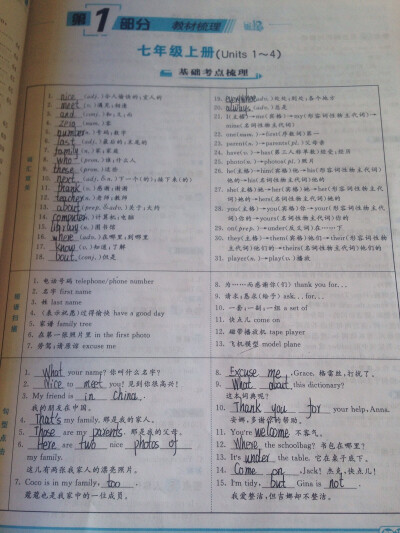 第1部分 教材梳理
七年级上册(Units 1～4)
基础考点梳理
1. nice (adj.) 令人愉快的;宜人的
2. meet (v.) 遇见;相逢
3. and (conj.) 和;又;而
4. zero (num.) 零
5. number (n.) 号码;数字
6. last (adj.) 最后的;末尾的
7. family (n.) 家;家庭
8. who (pron.) 谁;什么人
9. these (pron.) 这些
10. next (adj. &n.) 下一个(的);接下来(的)
11. thank (v.) 感谢;谢谢
12. teacher (n.) 老师;教师
13. about (prep. &adv.) 关于;大约
14. computer (n.) 计算机;电脑
15. library (n.) 图书馆
16. where (adv.) 在哪里;到哪里
17. know (v.) 知道;了解
18. but (conj.) 但是
19. everywhere (adv.) 处处;到处;各个地方
20. always (adv.) 总是
21. I(主格)→me(宾格)→my(形容词性物主代词)→
mine(名词性物主代词)
22. one(num.)→first(序数词)第一
23. parent(n.)→parents(pl.)父母亲
24. have(v.)→has(第三人称单数)经受;经历
25. photo(n.)→photos(pl.)照片
26. he(主格)→him(宾格)他→his(形容词性物主代词)
他的→his(名词性物主代词)他的
27. she(主格)她→her(宾格)她→her(形容词性物主代
词)她的→hers(名词性物主代词)她的
28. you(主格)你→you(宾格)你→your(形容词性物主代
词)你的→yours(名词性物主代词)你的
29. on(prep.)→under(反义词)在……下
30. they(主格)→them(宾格)他们→their(形容词性物
主代词)他们的→theirs(名词性物主代词)他们的
31. player(n.)→play(v.)播放
1. 电话号码 telephone/phone number
2. 名字 first name
3. 姓 last name
4. (表示祝愿)过得愉快 have a good day
5. 家谱 family tree
6. 在第一张照片里 in the first photo
7. 劳驾;请原谅 excuse me
8. 为……而感谢(你们) thank you for...
9. 请求;恳求(给予) ask... for...
10. 一套;一副;一组 a set of
11. 快点儿 come on
12. 磁带播放机 tape player
13. 飞机模型 model plane
1. What your name? 你叫什么名字?
2. Nice to meet you! 见到你很高兴!
3. My friend is in China.
我的朋友在中国。
4. That's my family. 那是我的家人。
5. Those are my parents. 那是我的父母。
6. Here are two nice photos of
my family.
这儿有两张我家人的漂亮照片。
7. Coco is in my family, too.
蔻蔻也是我家中的一位成员。
8. Excuse me, Grace. 格雷丝,打扰了。
9. What about this dictionary?
这本词典呢?
10. Thank you for your help, Anna.
安娜,多谢你的帮助。
11. You're welcome 不客气。
12. Where the schoolbag? 书包在哪里?
13. It's under the table. 它在桌子底下。
14. Come on, Jack! 杰克,快点儿!
15. I'm tidy, but Gina is not.
我爱整洁,但吉娜却不整洁。